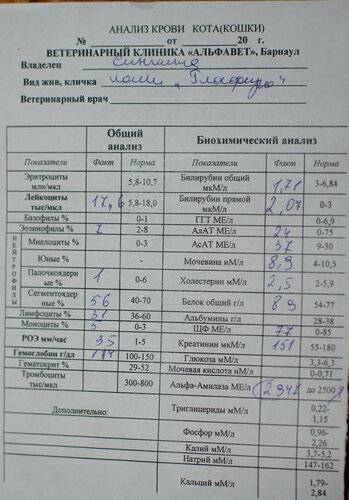 АНАЛИЗ КРОВИ КОТА(КОШКИ)
№ от 20 г.
ВЕТЕРИНАРНЫЙ КЛИНИКА «АЛЬФАВЕТ», Барнаул
Владелец
Вид жив, кличка кошка „Глафира“
Ветеринарный врач
Общий анализ Биохимический анализ
Показатели Факт Норма Показатели Факт Норма
Эритроциты млн/мкл 5,8-10,7 Билирубин общий мкМ/л 1,71 3-6,84
Лейкоциты тыс/мкл 17,6 5,8-18,0 Билирубин прямой мкМ/л 2,07 0-3
Базофилы % 0-1 ГГТ МЕ/л 0-6,9
Эозинофилы % 7 2-8 АлАТ МЕ/л 24 0-75
НЕЙТРОФИЛЫ
Миелоциты % 0-3 АсАТ МЕ/л 37 9-30
Юные % - Мочевина нМ/л 8,9 4-10,5
Палочкоядерные % 1 0-6 Холестерин мМ/л 2,5 2-5,9
Сегментоядерные % 56 40-70 Белок общий г/л 89 54-77
Лимфоциты % 31 36-60 Альбумины г/л 28-38
Моноциты % 5 0-3 ЩФ МЕ/л 77 0-85
РОЭ мм/час 35 1-5 Креатинин мкМ/л 151 55-180
Гемоглобин г/дл 100-150 Глюкоза мМ/л 3,3-6,3
Гематокрит % 29-52 Мочевая кислота нМ/л 0-0,71
Тромбоциты тыс/мкл 300-800 Альфа-Амилаза МЕ/л 2947 до 2500
Дополнительно: Триглицериды мМ/л 0,22-1,15
Фосфор мМ/л 0,96-2,26
Калий мМ/л 3,7-5,2
Натрий мМ/л 147-162
Кальций мМ/л 1,79-2,84